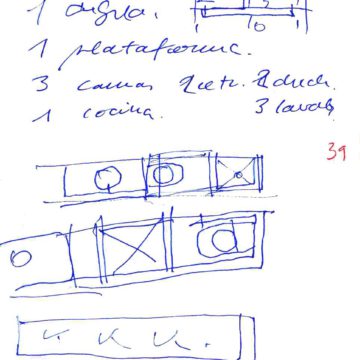 1
10
1 plataforma.
3 camas 2 retr. 2 duch.
1 cocina. 3 lavab
39